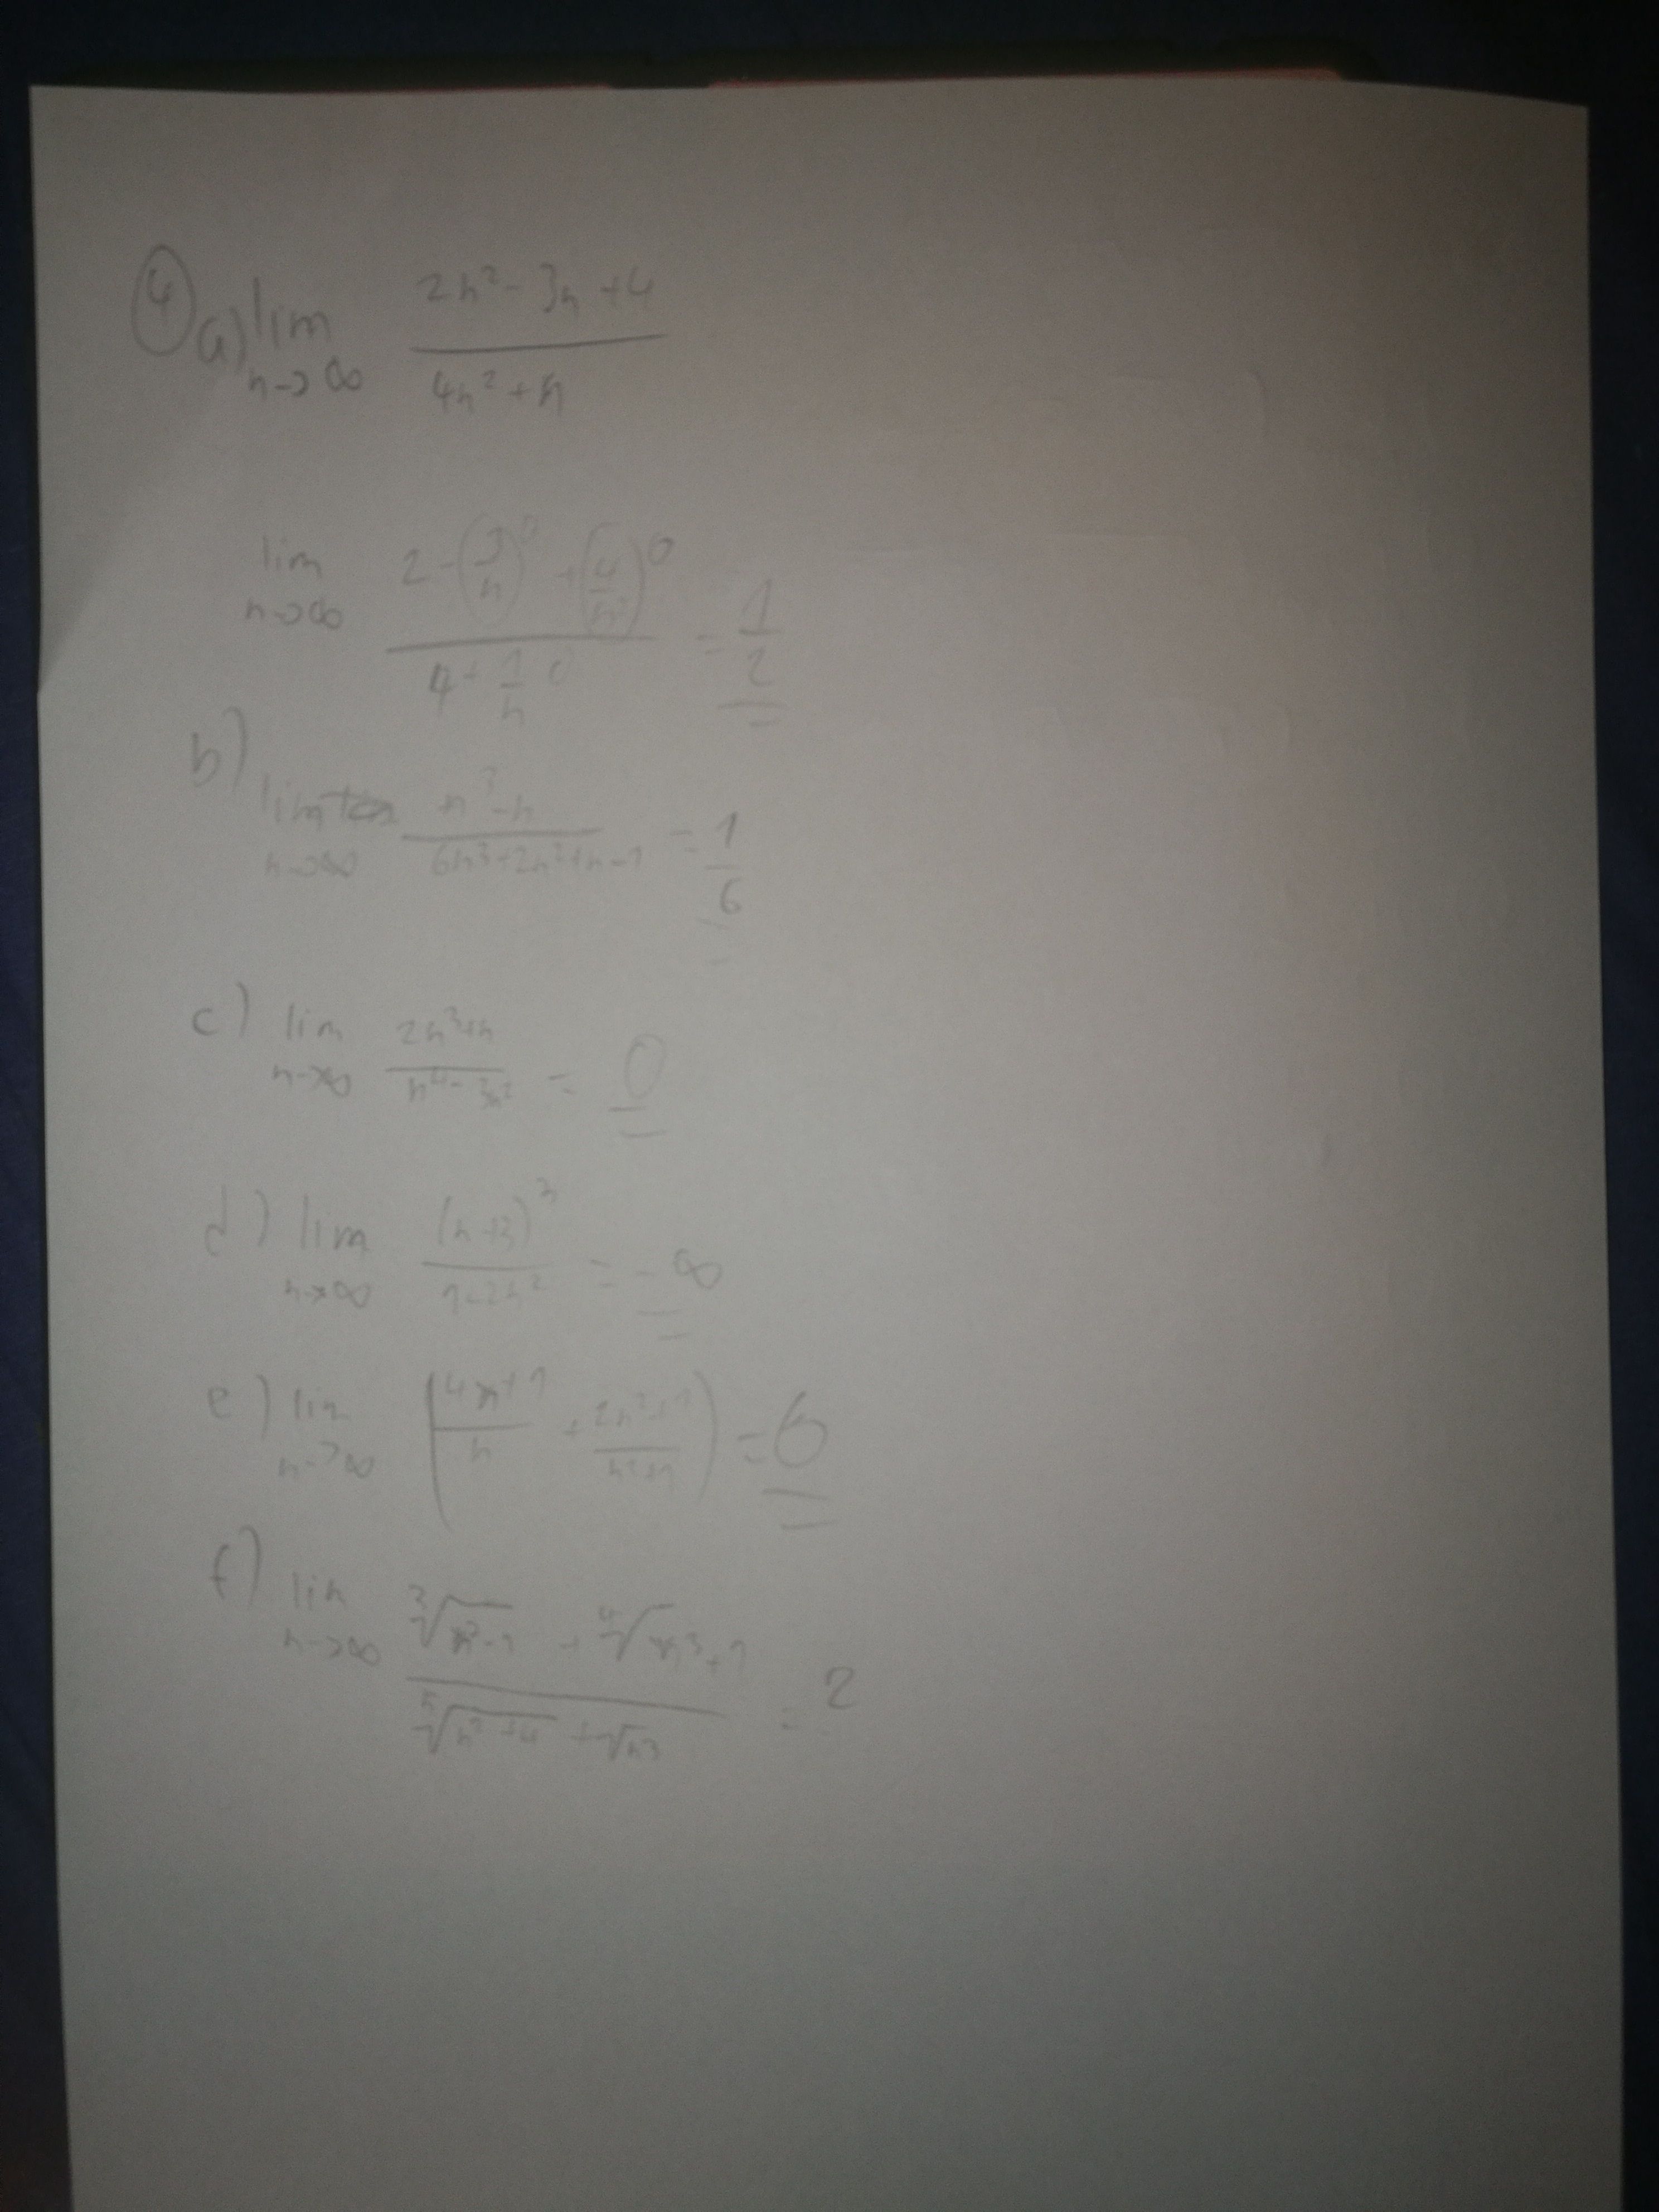 ④ a) lim n→∞ (2n² - 3n + 4)/(4n² + n)
lim n→∞ (2 - (3/n)⁰ + (4/n²)⁰)/(4 + 1/n ⁰) = 1/2
b) lim n→∞ (n³ - n)/(6n³ + 2n² + n - 1) = 1/6
c) lim n→∞ (2n³ + n)/(n⁴ - 3n²) = 0
d) lim n→∞ (n + 3)³/(1 - 2n²) = -∞
e) lim n→∞ ((4n + 1)/n + (2n² + 1)/(n² + 1)) = 6
f) lim n→∞ (∛(n² - 1) + ∜(n³ + 1))/(⁵√(n² + 4) + √n³) = 2